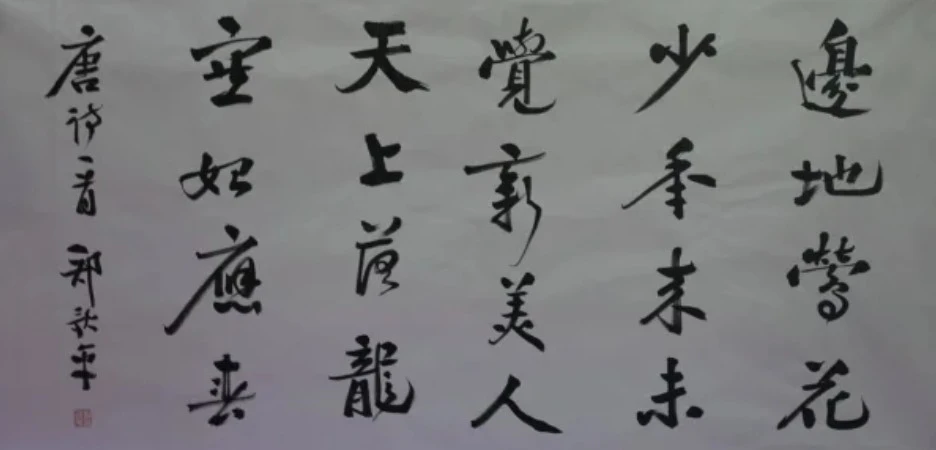 邊地鶯花
少年来未
覺新美人
天上落龍
塞始應春
唐诗一首 郑 平